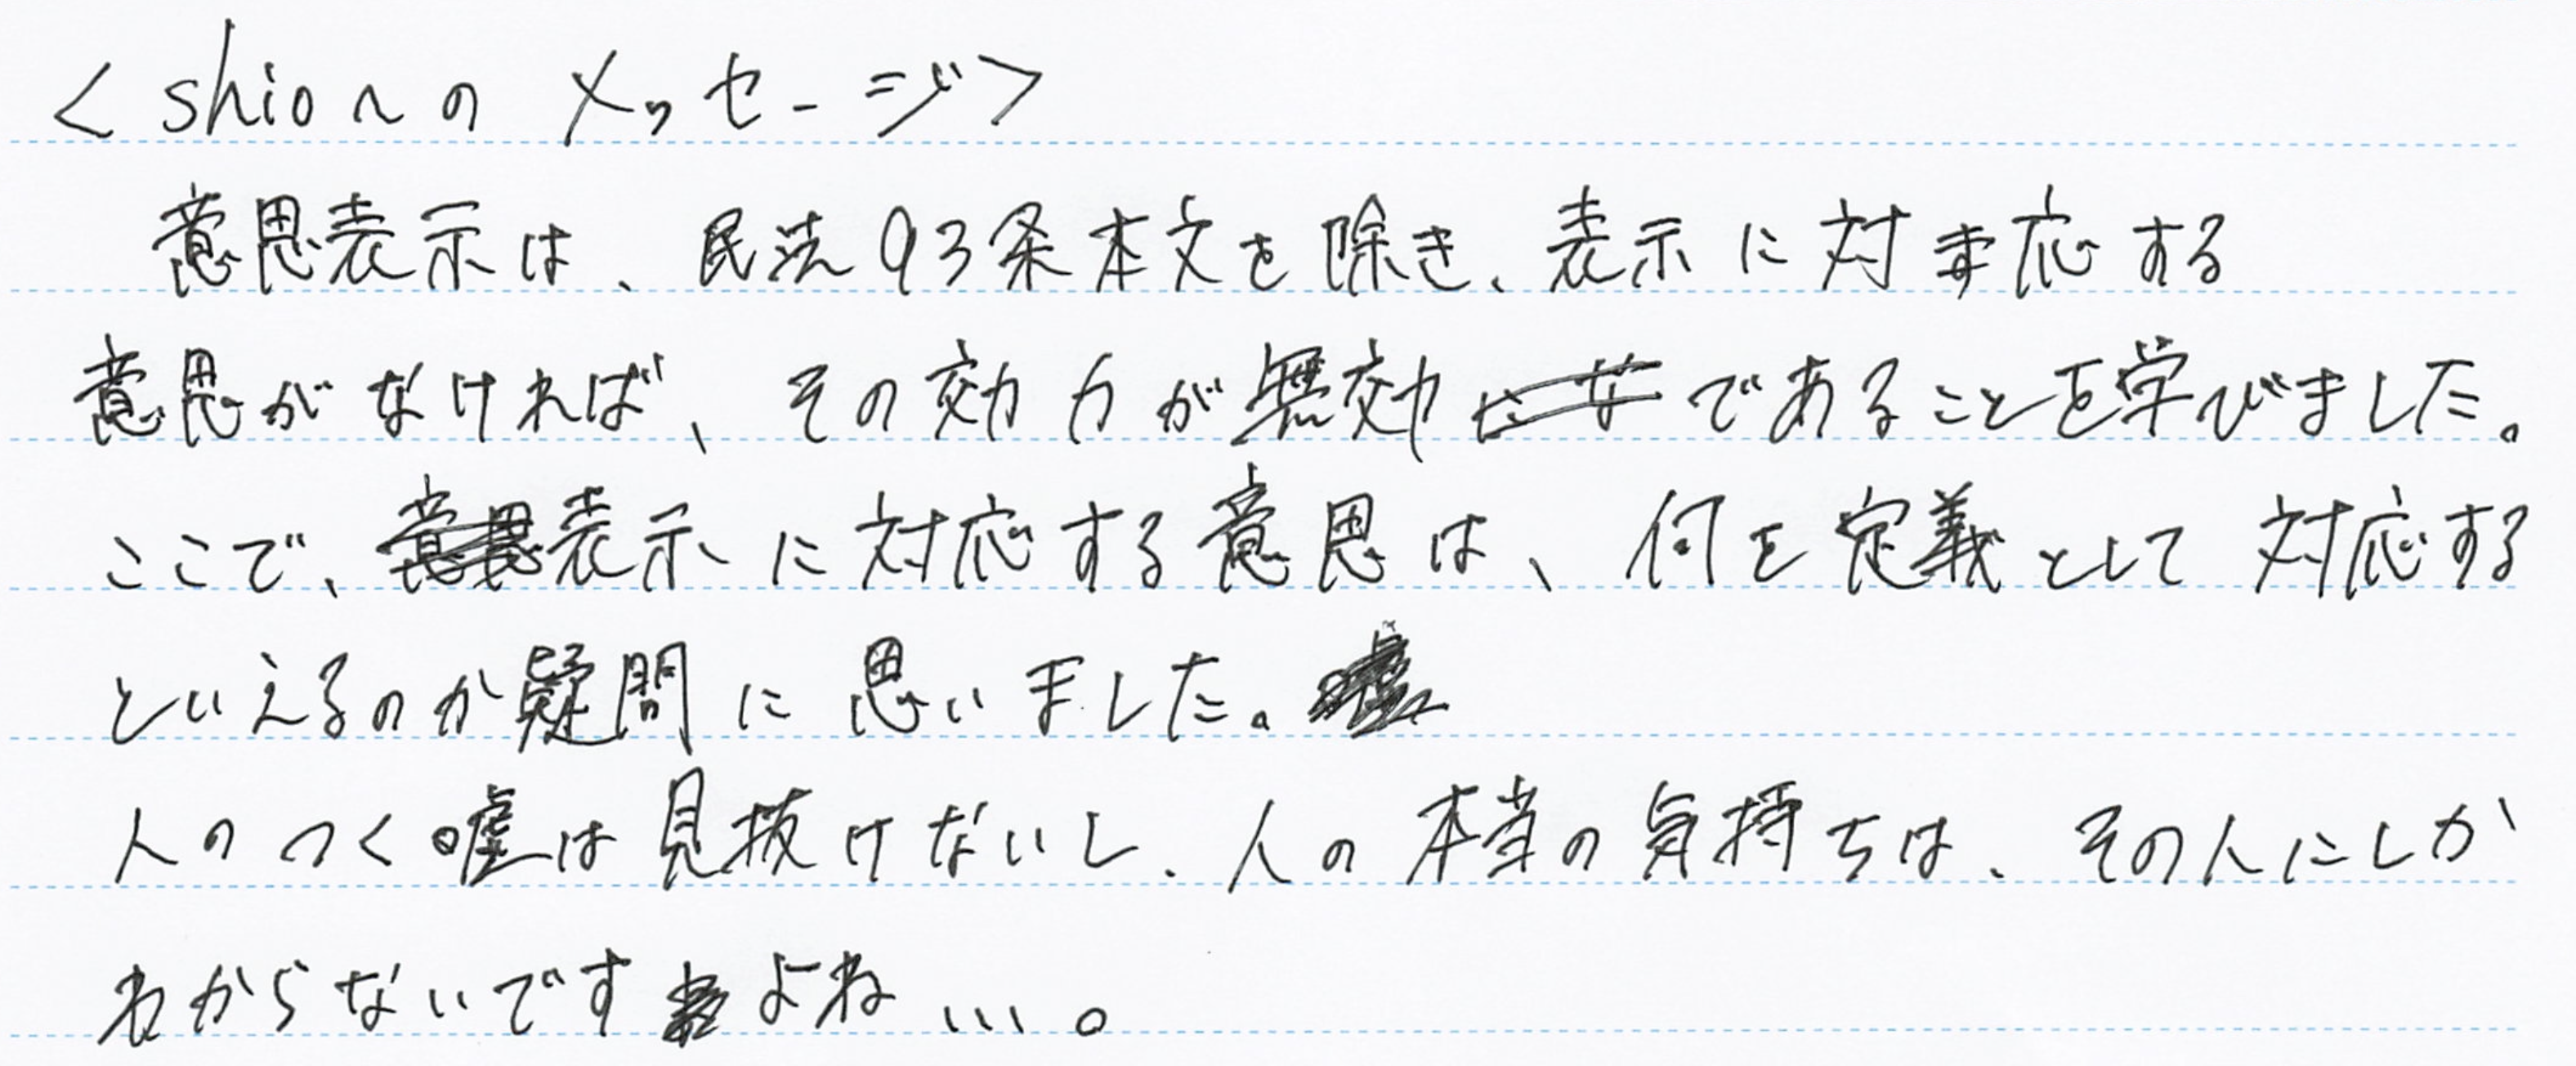 <shioへのメッセージ>
意思表示は、民法93条本文を除き、表示に対応する
意思がなければ、その効力が無効であることを学びました。
ここで、表示に対応する意思は、何を定義として対応する
といえるのか疑問に思いました。
人のつく嘘は見抜けないし、人の本当の気持ちは、その人にしか
わからないですよね…。